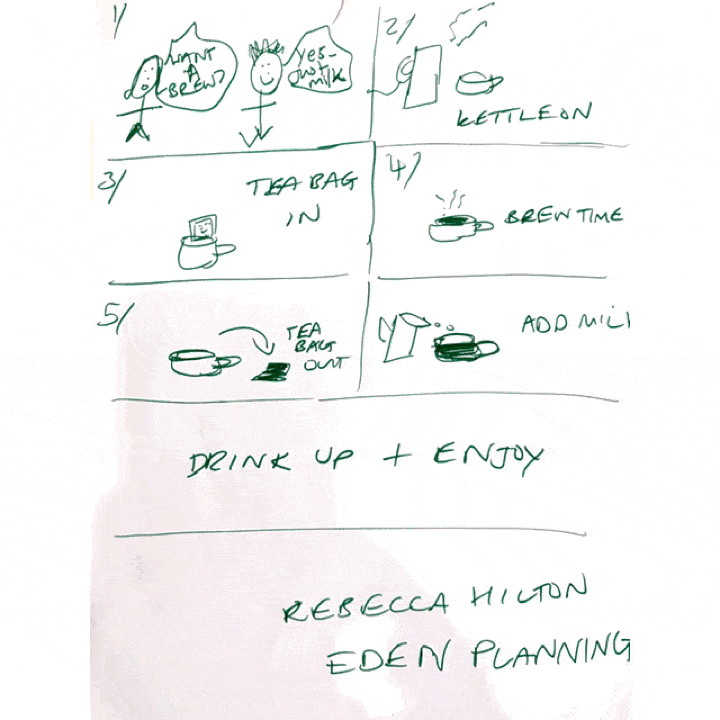 1/
WANT
A
BREW?
yes-
JUST
MILK
2/
KETTLE ON
3/
TEA BAG
IN
4/
BREW TIME
5/
TEA
BAG
OUT
ADD MIL
DRINK UP + ENJOY
REBECCA HILTON
EDEN PLANNING